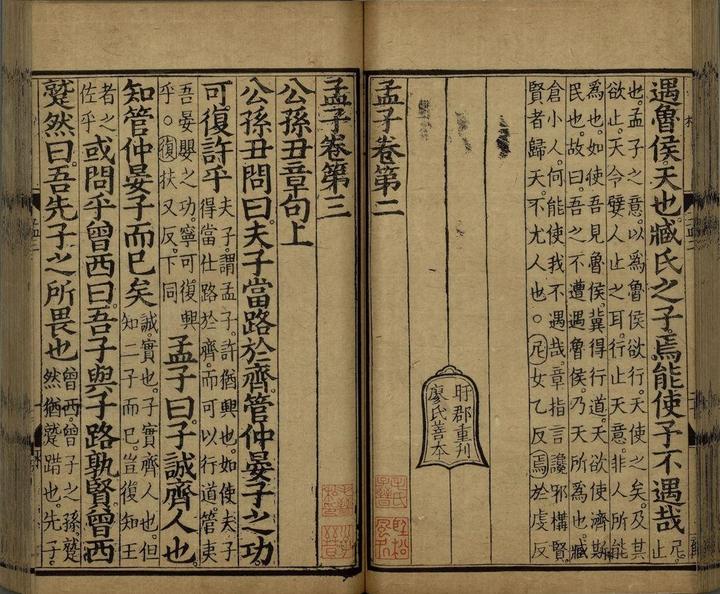 遇魯侯。天也。臧氏之子。焉能使子不遇哉尼。止
也。孟子之意。以爲魯侯欲行。天使之矣。及其
欲止。天令嬖人止之耳。行止天意。非人所能
爲也。如使吾見魯侯。冀得行道。天欲使濟斯
民也。故曰。吾之不遭遇魯侯。乃天所爲也。臧
倉小人。何能使我不遇哉。章指言讒邪構賢。
賢者歸天。不尤人也。○尼女乙反焉於虔反
盱郡重刊
廖氏善本
孟子卷第二
孟子卷第三
公孫丑章句上
公孫丑問曰。夫子當路於齊。管仲晏子之功。
可復許乎夫子。謂孟子。許猶興也。如使夫子得當仕路於齊。而可以行道。管夷
吾晏嬰之功。寧可復興乎。○復扶又反。下同孟子曰。子誠齊人也。
知管仲晏子而已矣誠。實也。子實齊人也。但知二子而已。豈復知王
者之佐乎或問乎曾西曰。吾子與子路孰賢。曾西
蹵然曰。吾先子之所畏也曾西。曾子之孫。蹵然猶蹵踖也。先子。